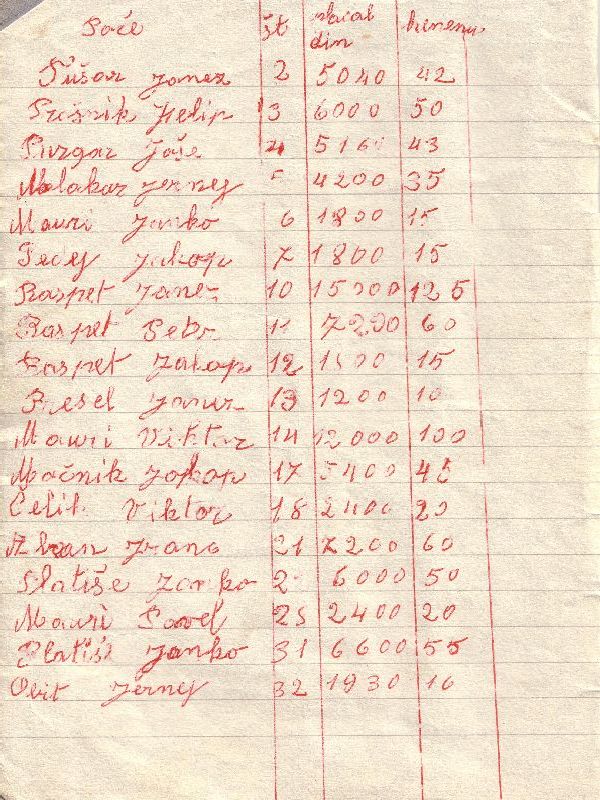 Poče št plačal din
Šušar Janez 2 5040 42
Prešnik Felip 3 6000 50
Purgar Jože 4 5160 43
Mlakar Jernej 5 4200 35
Mavri Janko 6 1800 15
Jakop 7 1800 15
Raspet Janez 10 15000 125
Raspet Petr 11 7200 60
Raspet Jakop 12 1800 15
Presel Janez 13 1200 10
Mavri Viktor 14 12000 100
Močnik Jakop 17 5400 45
Čelik Viktor 18 2400 20
Franc 21 7200 60
Platiše Janko 2 6000 50
Mavri Pavel 25 2400 20
Platiše Janko 31 6600 55
Obit Jernej 32 1930 16